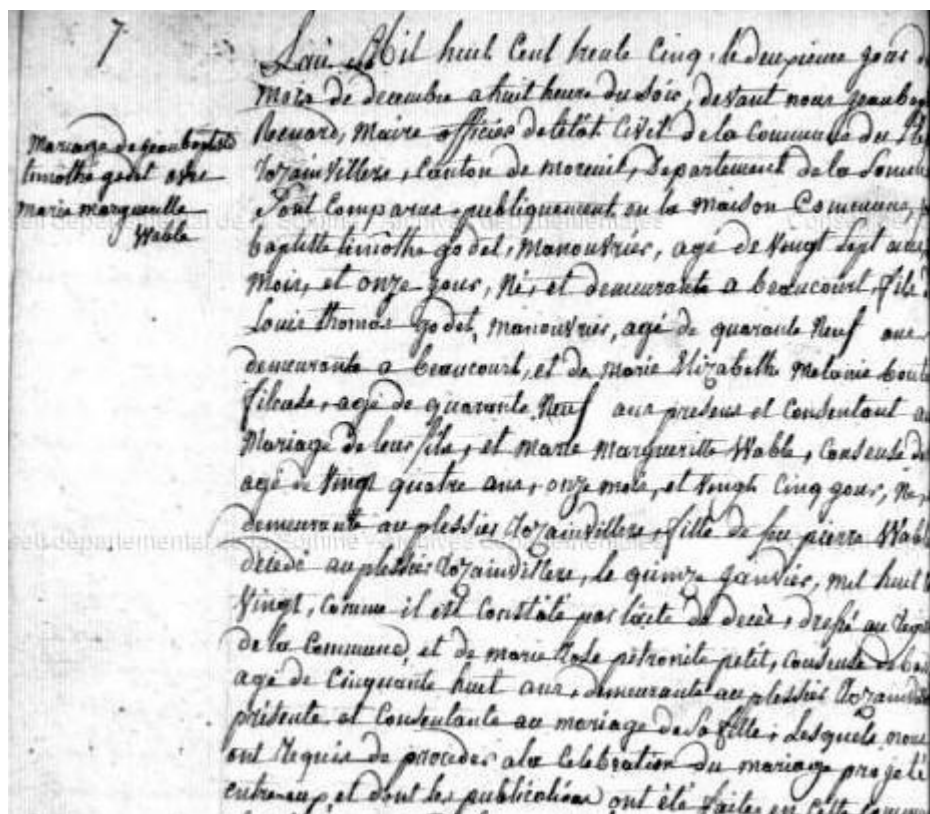 7
Mariage de jean baptiste
timothé godet avec
marie margueritte
Wable
L'an mil huit Cent trente Cinq, le deuxieme jour d
mois de decembre a huit heure du soir, devant nous jean bap
Renard, Maire officier de l'état Civil de la Commune du Ples
Rozainvillers, Canton de moreuil, Departement de la Somme
Sont Comparus publiquement en la maison Commune,
baptiste timothe godet, Manouvrier, agé de Vingt Sept ans,
mois, et onze jours, Né, et demeurante a beaucourt, fils
Louis thomas godet, manouvrier, agé de quarante Neuf ans
demeurante a beaucourt, et de Marie Elizabethe Melanie
fileuse, agé de quarante Neuf ans presens et Consentant au
Mariage de leur fils, et marie Margueritte Wable, Couseuse de
agé de Vingt quatre ans, onze mois, et Vingt Cinq jours, Né,
demeurante au plessier Rozainvillers, fille de feu pierre Wable
décédé au plessier Rozainvillers, le quinze janvier, mil huit
Vingt, comme il est Constaté par l'acte de decès, dressé au
de la Commune, et de marie Rose petronile petit, Couseuse de bas
agé de Cinquante huit ans, demeurante au plessier Rozainvill
présente et Consentante au mariage de Sa fille, Lesquels nous
ont Requis de procéder a la Celebration du mariage projeté
entre eux, et dont les publications ont été faites en Cette Commun